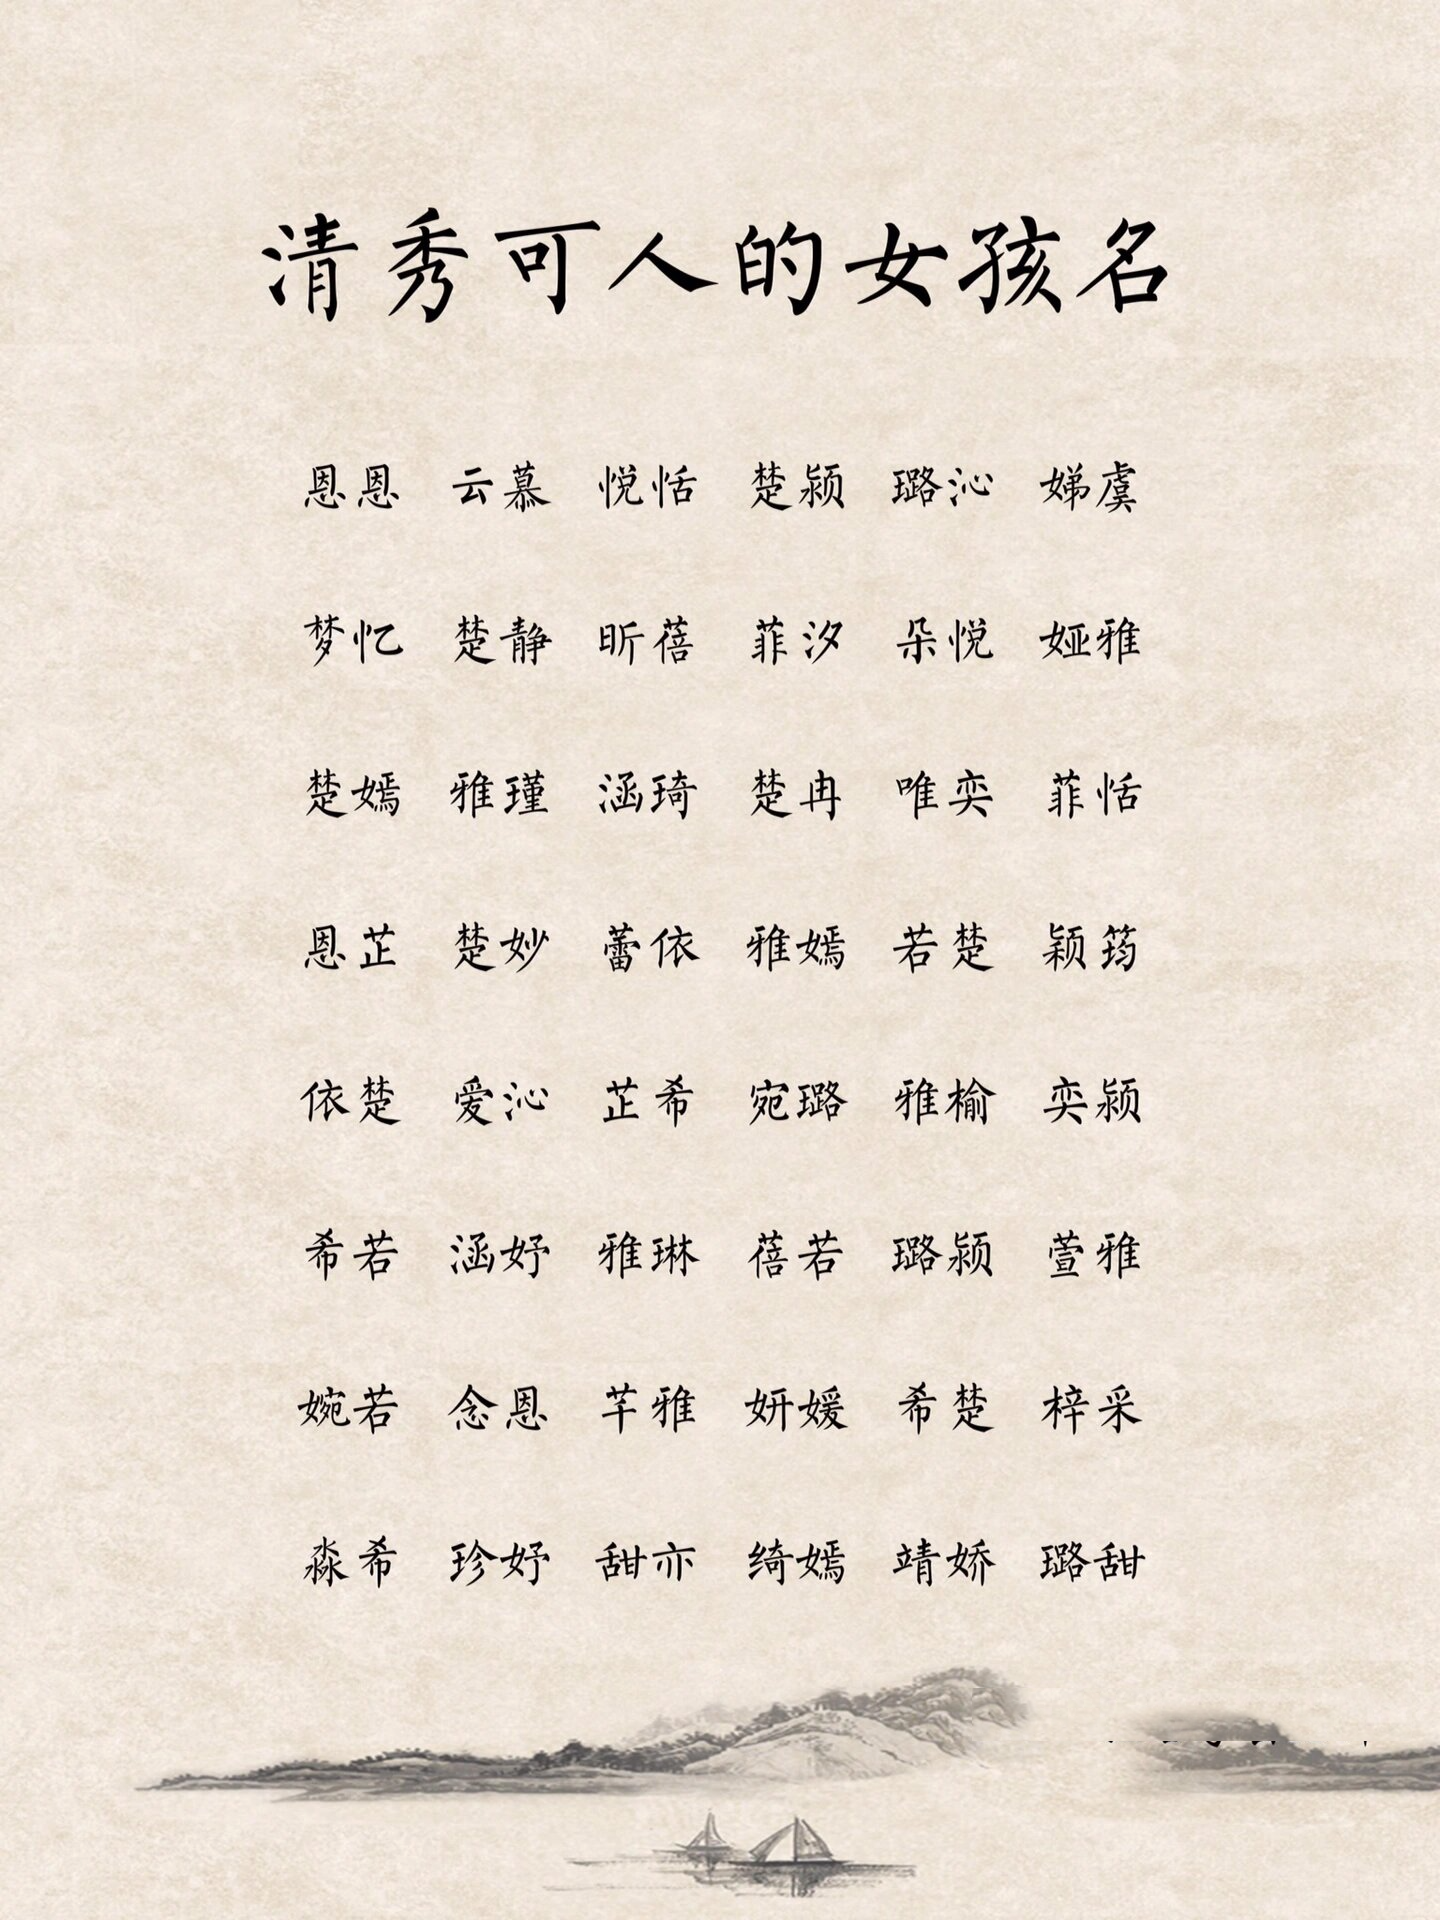 清秀可人的女孩名
恩恩 云慕 悦恬 楚颍 璐沁 娣虞
梦忆 楚静 昕蓓 菲汐 朵悦 娅雅
楚嫣 雅瑾 涵琦 楚冉 唯奕 菲恬
恩芷 楚妙 蕾依 雅嫣 若楚 颖筠
依楚 爱沁 芷希 宛璐 雅榆 奕颍
希若 涵妤 雅琳 蓓若 璐颍 萱雅
婉若 念恩 芊雅 妍媛 希楚 梓采
淼希 珍妤 甜亦 绮嫣 靖娇 璐甜